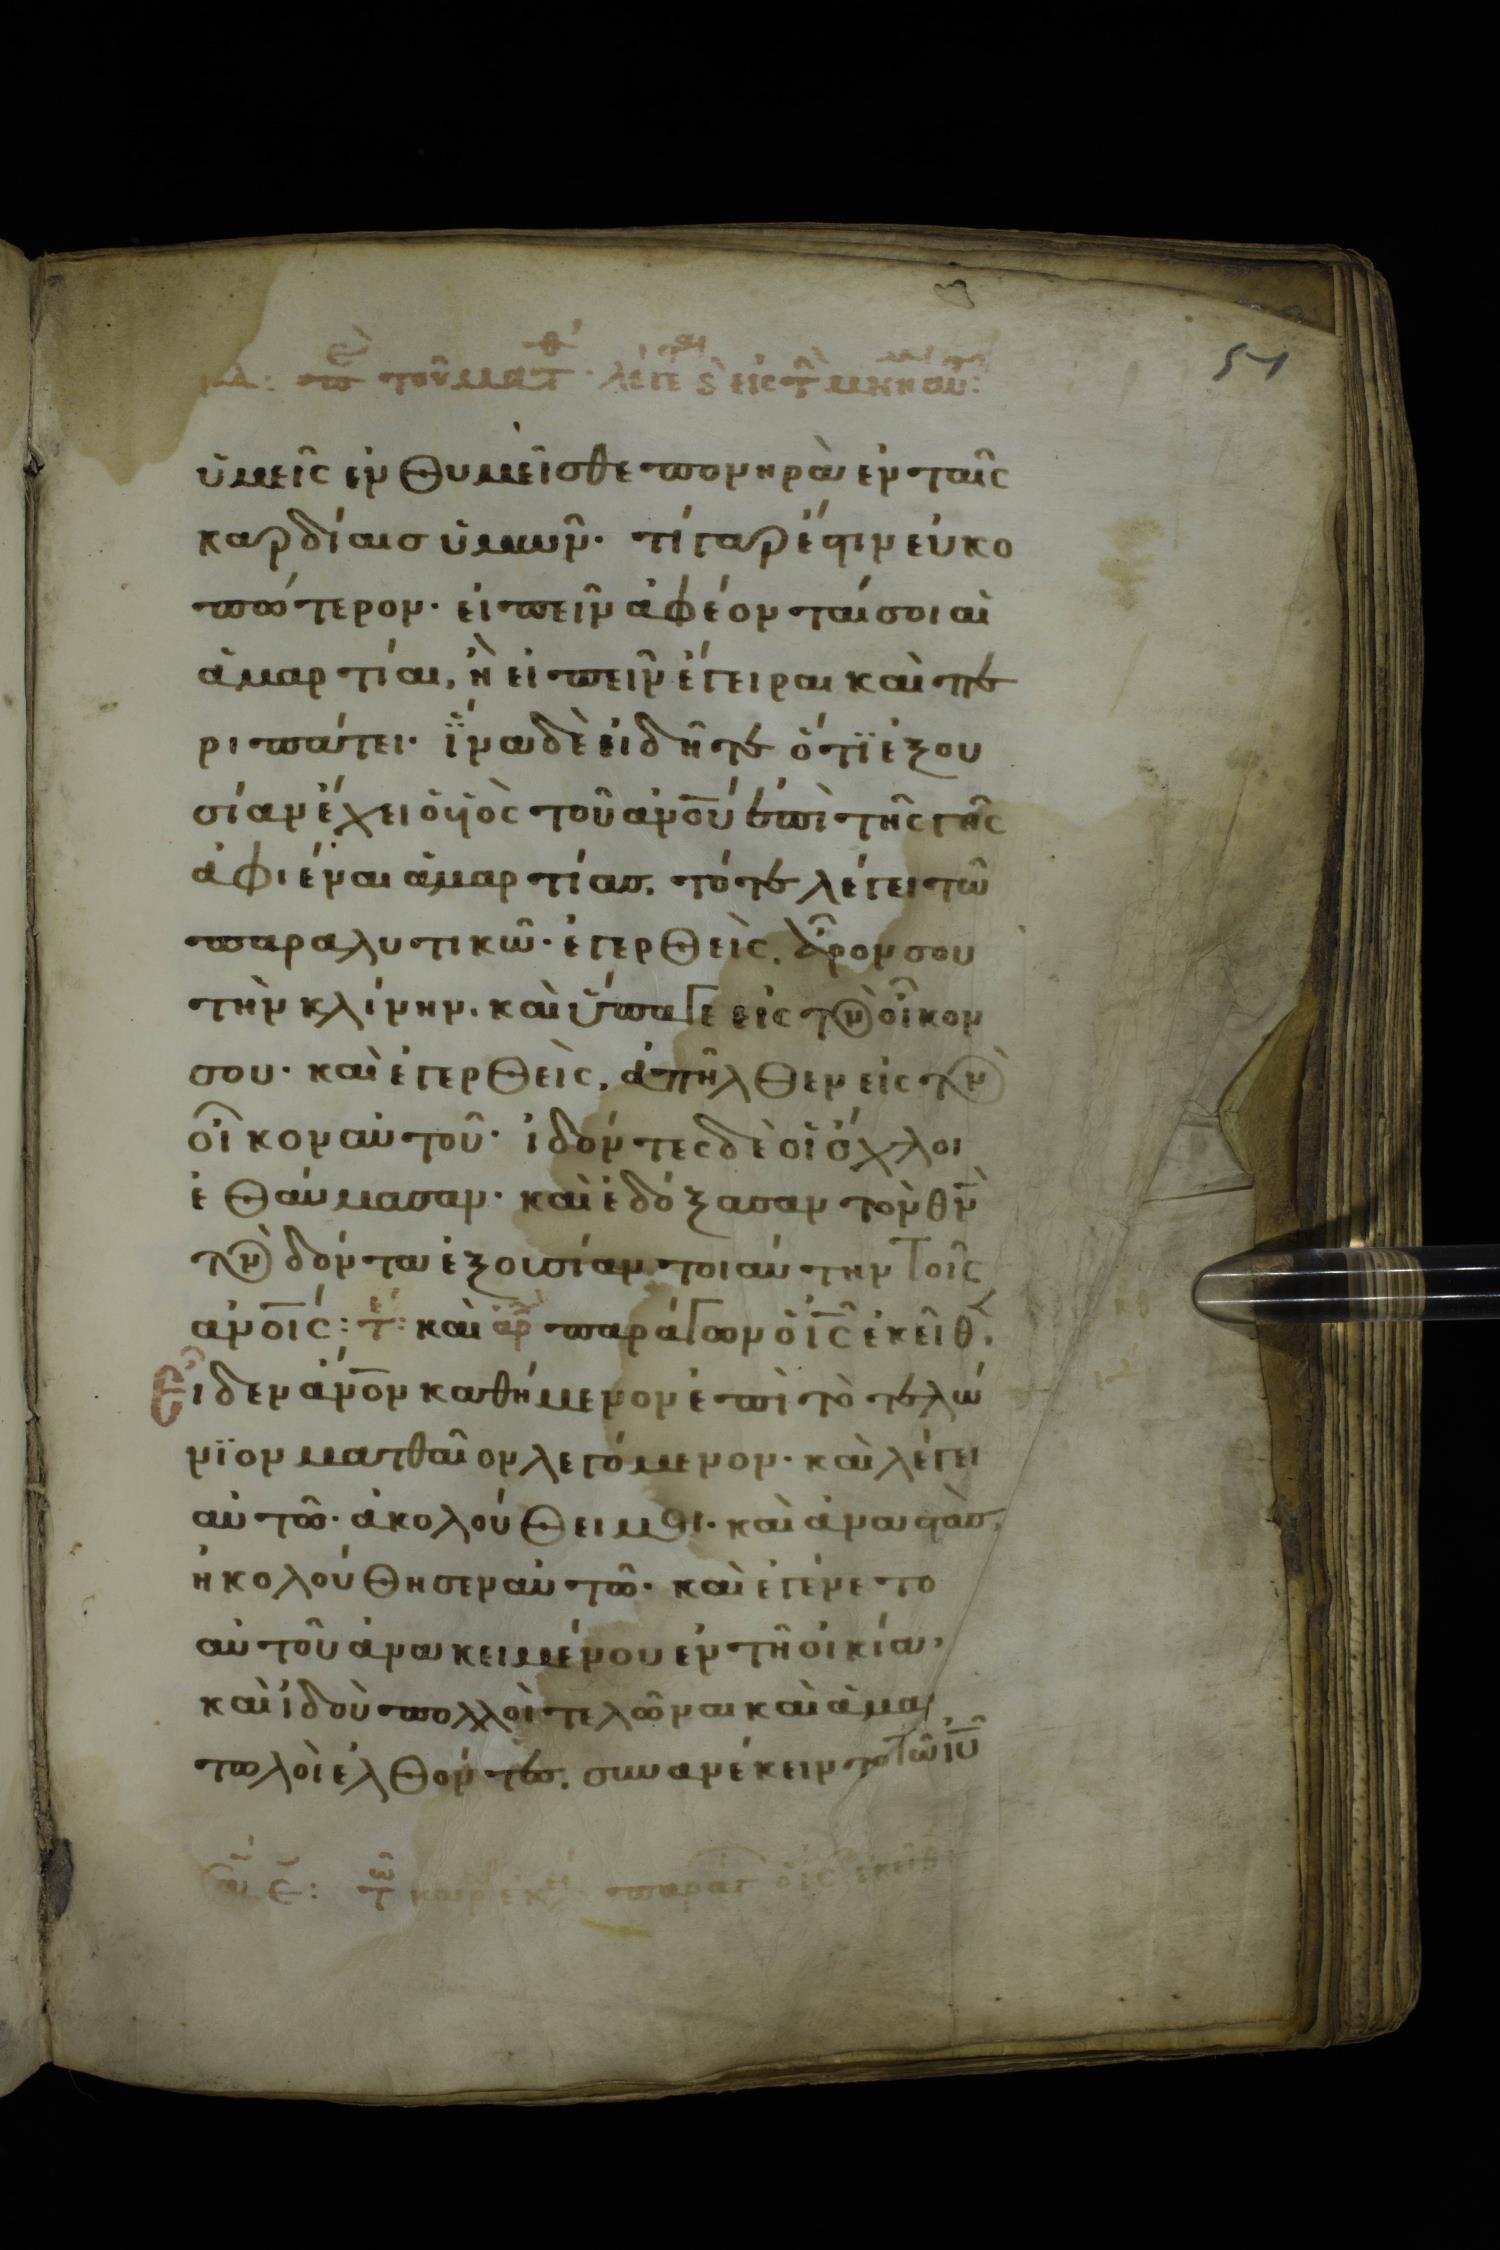 51
ὑμεῖς ἐνθυμεῖσθε πονηρὰ ἐν ταῖς
καρδίαισ ὑμῶν· τί γαρ ἐστιν εὐκο
πώτερον· εἰπεῖν ἀφέονταί σοι αἱ
ἁμαρτίαι, ἢ εἰπεῖν ἔγειραι καὶ πε
ριπάτει· ἵνα δὲ εἰδῆτε ὅτϊ ἐξου
σίαν ἔχει ὁ υἱὸς τοῦ ἀνου ἐπὶ τῆς γῆς
ἀφιέναι ἁμαρτίασ. τότε λέγει τῶ
παραλυτικῶ· ἐγερθεὶς, ἆρον σου
τὴν κλίνην. καὶ ὕπαγε εἰς τὸν οἶκον
σου· καὶ ἐγερθεὶς, ἀπῆλθεν εἰς τὸν
οἶκον αὐτοῦ· ἰδόντες δὲ οἱ ὄχλοι
ἐθαύμασαν· καὶ ἐδόξασαν τὸν θν
τὸν δόντα ἐξουσίαν τοιαύτην τοῖς
ἀνοις: τε: καὶ αρ παράγων ὁ ις ἐκεῖθ,
ειδεν ἄνον καθήμενον ἐπὶ τὸ τελώ
νϊον ματθαῖον λεγόμενον· καὶ λέγει
αὐτῶ· ἀκολούθει μοι· καὶ ἀναστὰσ,
ἠκολούθησεν αὐτῶ· καὶ ἐγένετο
αὐτοῦ ἀνακειμένου ἐν τῆ οἰκία,
καὶ ἰδοὺ πολλοὶ τελῶναι καὶ ἁμαρ
τωλοὶ ἐλθόντεσ, συνανέκειντο τῶ ιυ